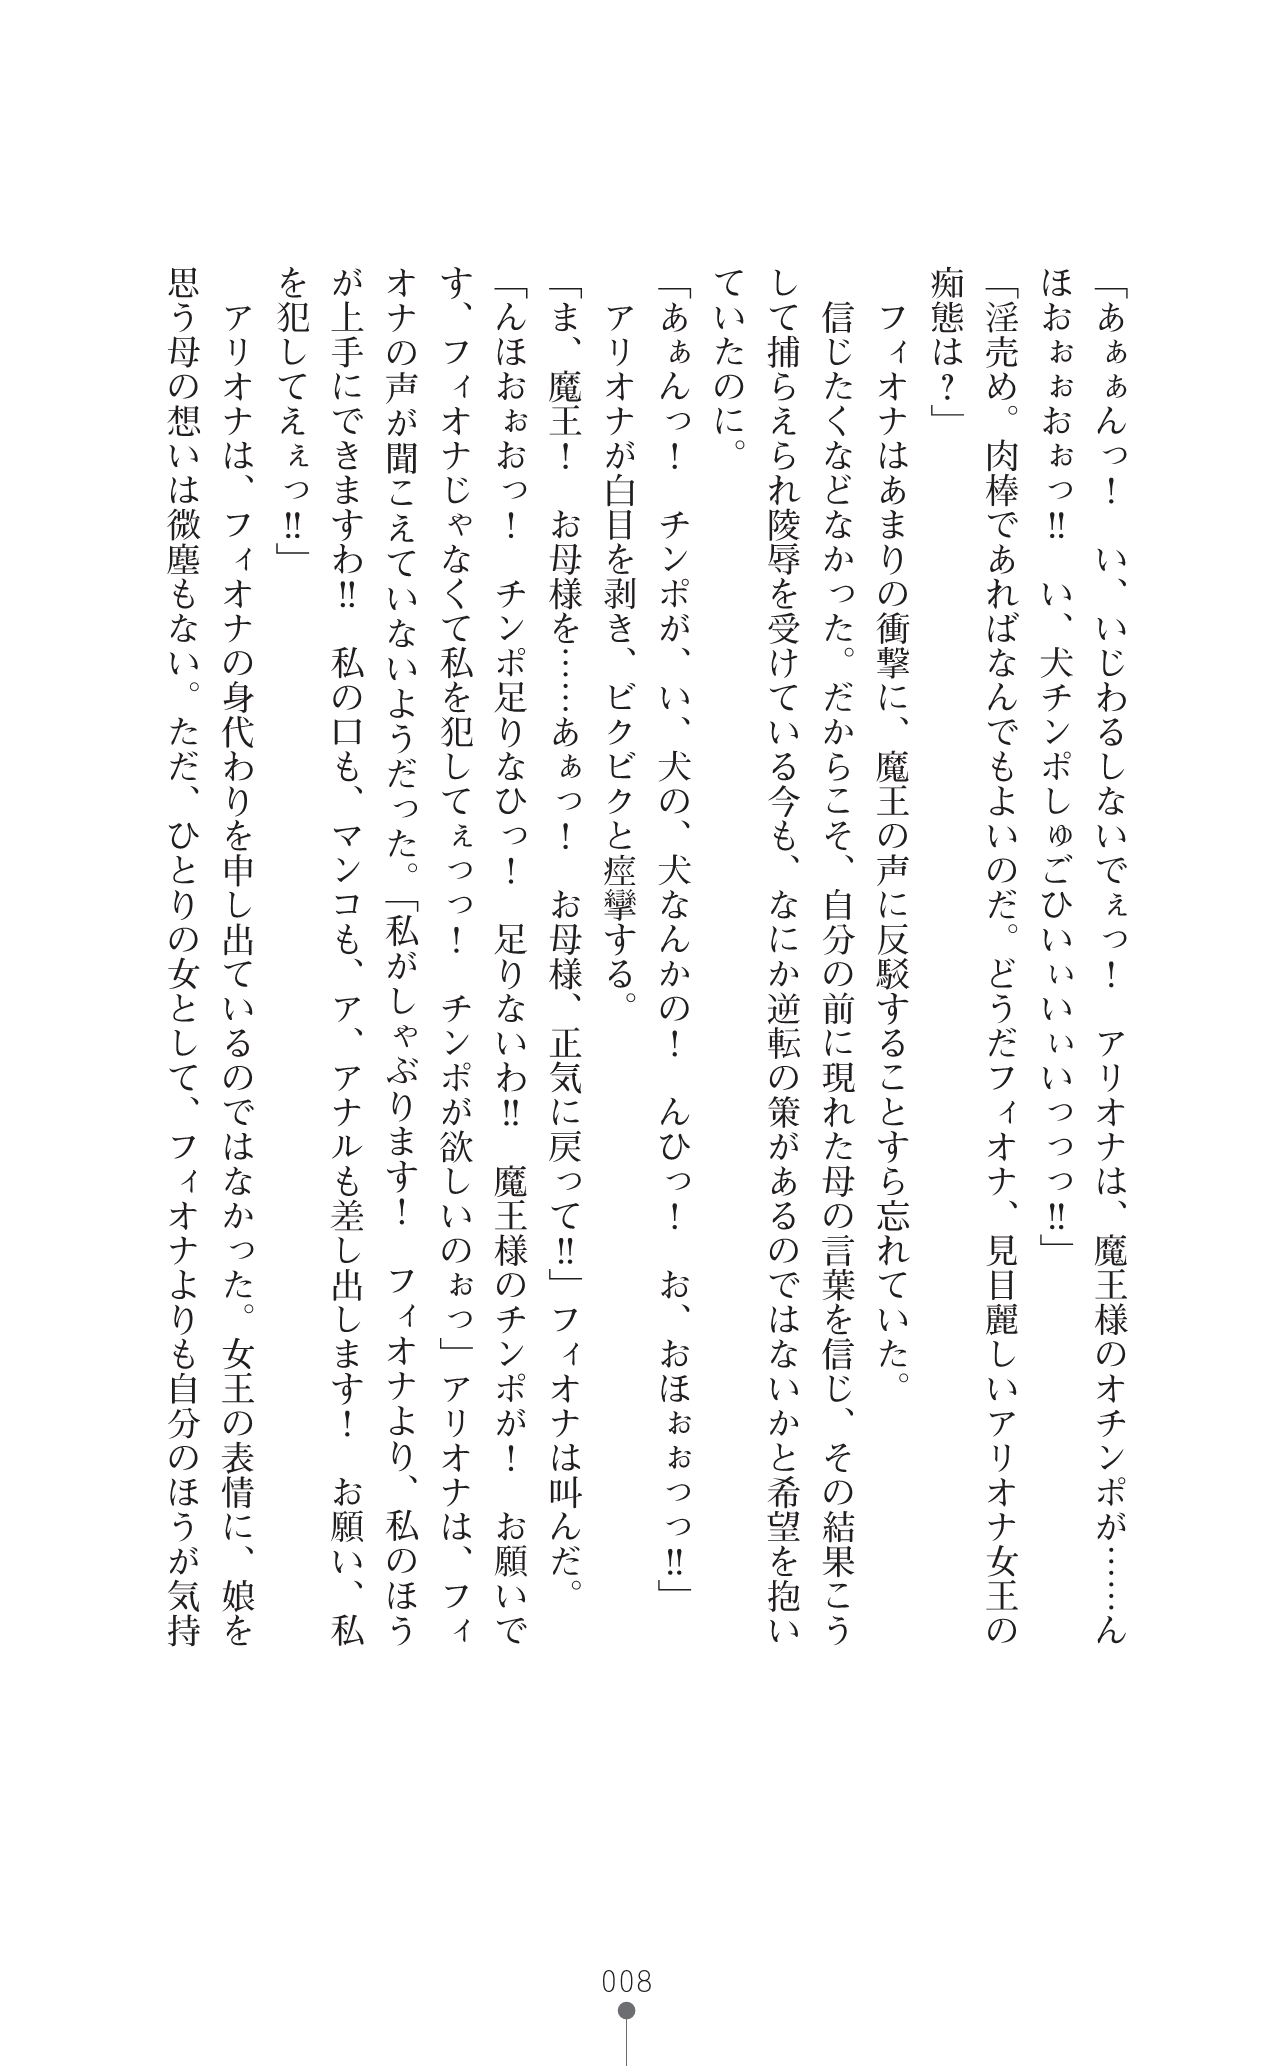 「あぁぁんっ！　い、いじわるしないでぇっ！　アリオナは、魔王様のオチンポが……ん
ほおぉぉおぉっ‼　い、犬チンポしゅごひいぃいぃいっっっ‼」
「淫売め。肉棒であればなんでもよいのだ。どうだフィオナ、見目麗しいアリオナ女王の
痴態は？」
　フィオナはあまりの衝撃に、魔王の声に反駁することすら忘れていた。
　信じたくなどなかった。だからこそ、自分の前に現れた母の言葉を信じ、その結果こう
して捕らえられ陵辱を受けている今も、なにか逆転の策があるのではないかと希望を抱い
ていたのに。
「あぁんっ！　チンポが、い、犬の、犬なんかの！　んひっ！　お、おほぉぉっっ‼」
　アリオナが白目を剥き、ビクビクと痙攣する。
「ま、魔王！　お母様を……あぁっ！　お母様、正気に戻って‼」フィオナは叫んだ。
「んほおぉおっ！　チンポ足りなひっ！　足りないわ‼　魔王様のチンポが！　お願いで
す、フィオナじゃなくて私を犯してぇっっ！　チンポが欲しいのぉっ」アリオナは、フィ
オナの声が聞こえていないようだった。「私がしゃぶります！　フィオナより、私のほう
が上手にできますわ‼　私の口も、マンコも、ア、アナルも差し出します！　お願い、私
を犯してえぇっ‼」
　アリオナは、フィオナの身代わりを申し出ているのではなかった。女王の表情に、娘を
思う母の想いは微塵もない。ただ、ひとりの女として、フィオナよりも自分のほうが気持
008